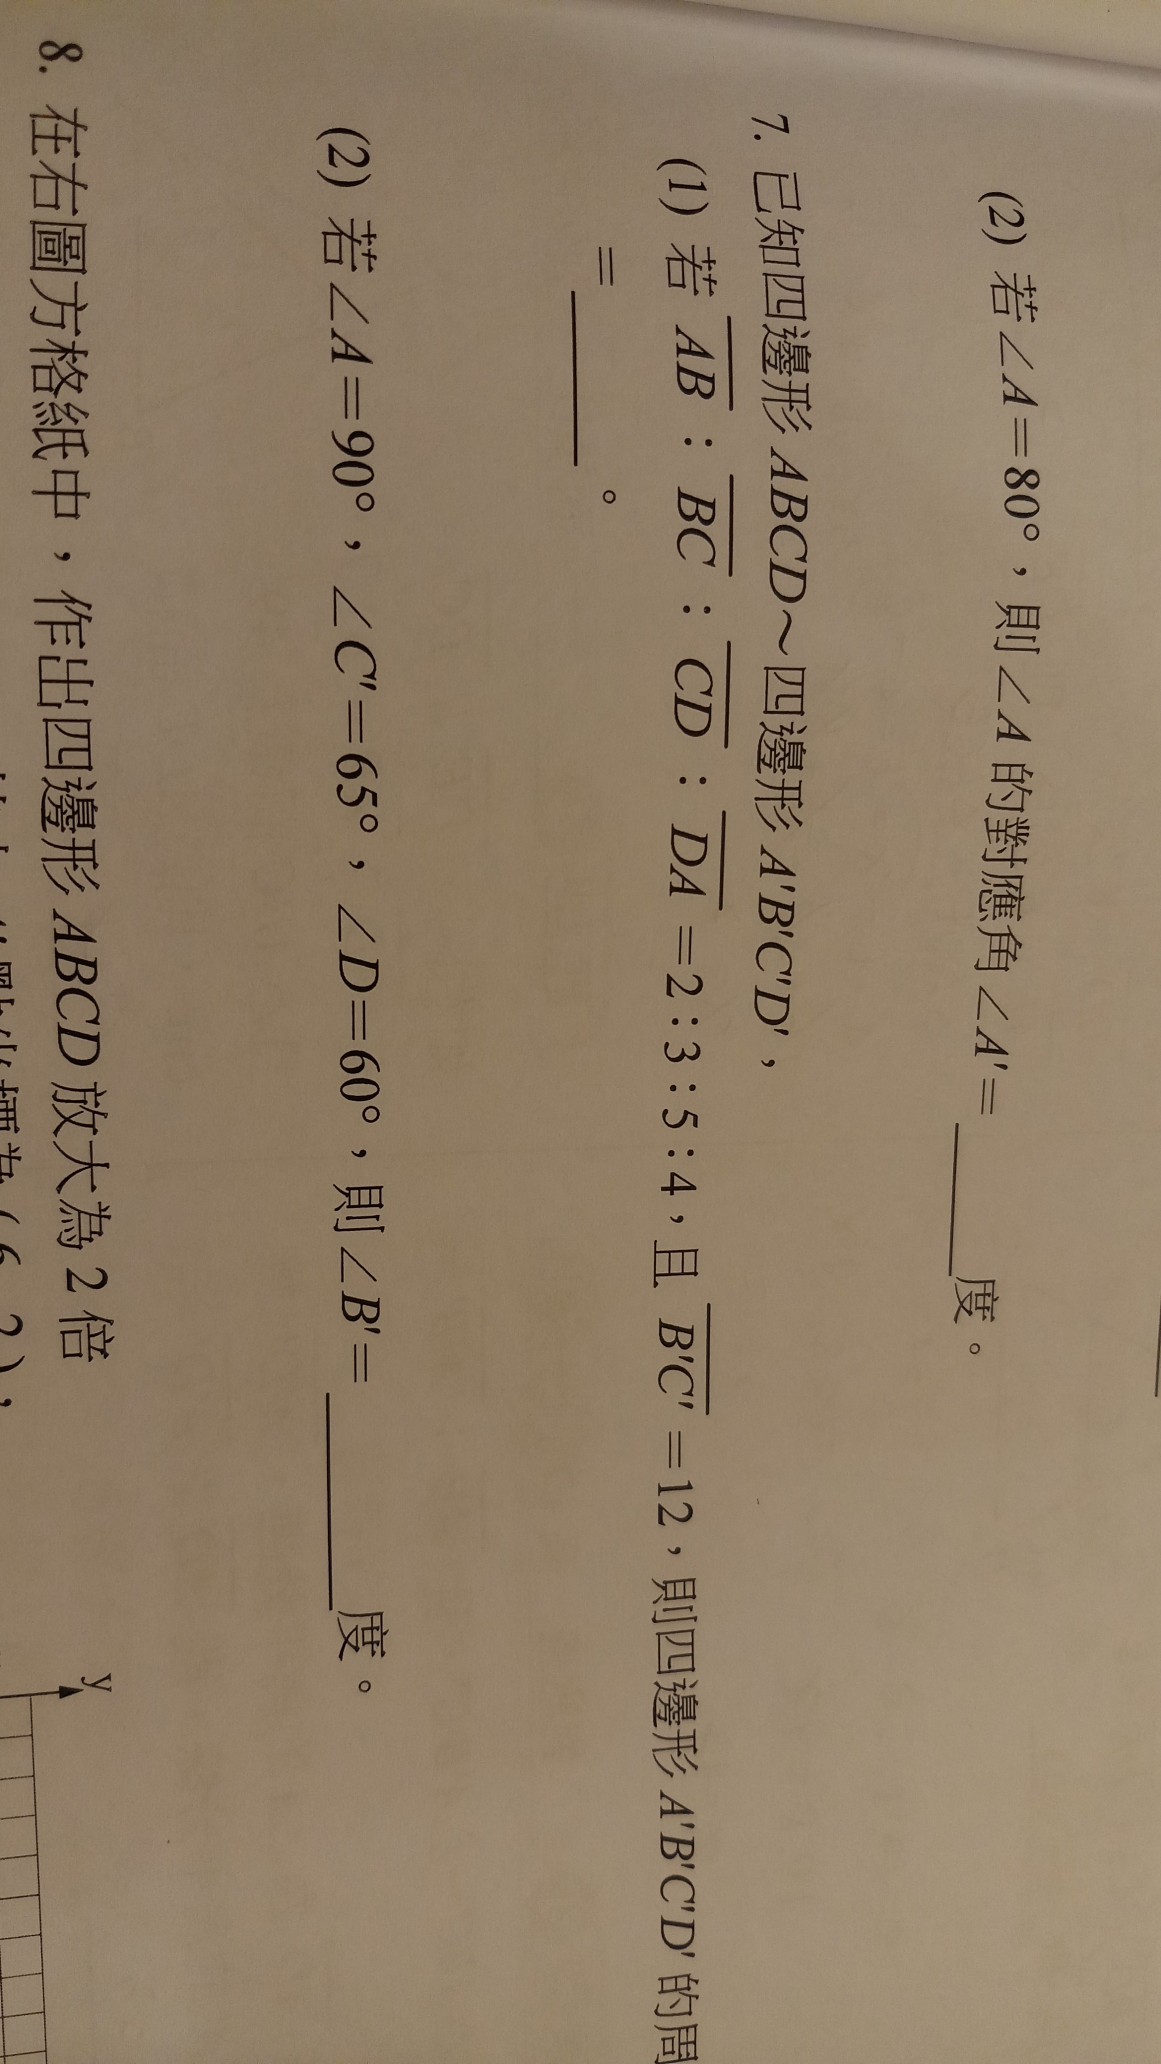 (2) 若∠A=80°,則∠A 的對應角∠A'=______度。
7. 已知四邊形 ABCD~四邊形 A'B'C'D',
(1) 若 AB:BC:CD:DA=2:3:5:4,且 B'C'=12,則四邊形 A'B'C'D' 的周
=______。
(2) 若∠A=90°,∠C'=65°,∠D=60°,則∠B'=______度。
8. 在右圖方格紙中,作出四邊形 ABCD 放大為 2 倍
y